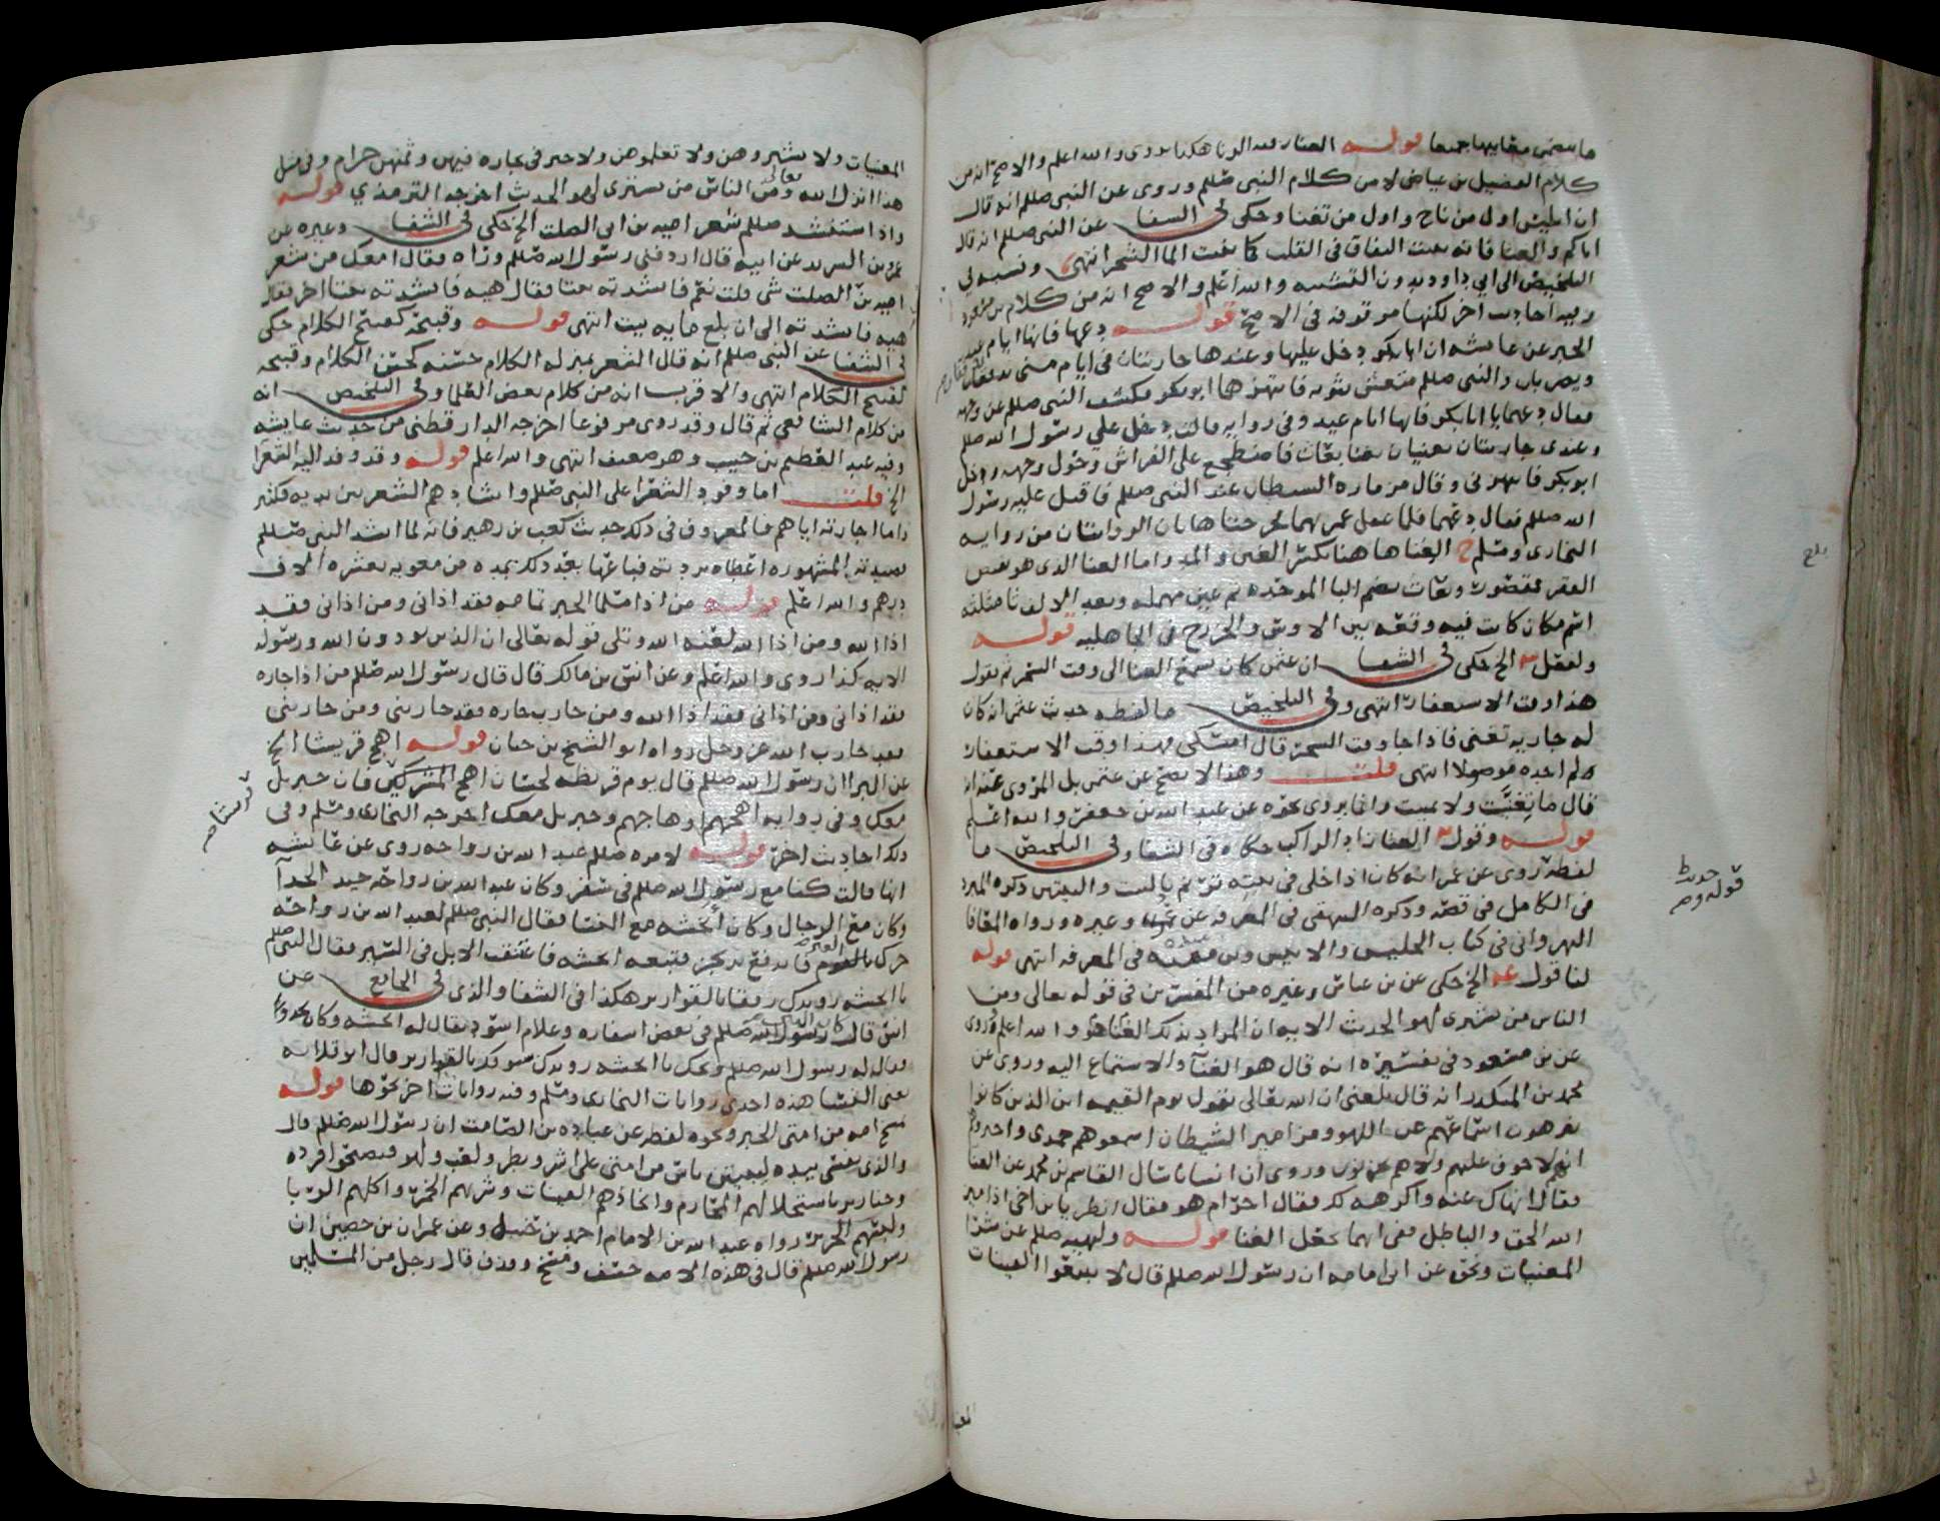 ما بعضى معانيها جميعا قوله الغنا رقيه الزنا هكذا روى والله اعلم والاصح انه من
كلام الفضيل بن عياض لا من كلام النبى صللم وروى عن النبى صللم انه قال
ان ابليس اول من ناح واول من تغنا وحكى فى الشفا عن النبى صللم انه قال
اياكم والغنا فانه ينبت النفاق فى القلب كما ينبت الما الشجر انتهى ونسبه فى
التلخيص الى ابى داود بدون التشبيه والله اعلم والاصح انه من كلام بن مسعود
وفيه احاديث اخر لكنها موقوفه فى الاصح قوله دعها فانها ايام عيد
الخبر عن عايشه ان ابا بكر دخل عليها وعندها جاريتان فى ايام منى تدففان
ويضربان والنبى صللم متغش بثوبه فانتهرهما ابو بكر فكشف النبى صللم عن وجهه
فقال دعهما يا ابا بكر فانها ايام عيد وفى روايه قالت دخل علي رسول الله صللم
وعندى جاريتان تغنيان بغنا بعاث فاضطجع على الفراش وحول وجهه ودخل
ابو بكر فانتهرنى وقال مزماره الشيطان عند النبى صللم فاقبل عليه رسول
الله صللم فقال دعهما فلما غفل غمزتهما فخرجتا هاتان الروايتان من روايه
البخارى ومسلم ح الغنا هاهنا بكسر الغين والمد واما الغنا الذى هو نقيض
الفقر فمقصور وبعاث بضم البا الموحده ثم عين مهمله وبعد الالف ثا مثلثه
اسم مكان كانت فيه وقعه بين الاوس والخزرج فى الجاهليه قوله
ولفعل الخ حكى فى الشفا ان عثمن كان يسمع الغنا الى وقت السحر ثم يقول
هذا وقت الاستغفار انتهى وفى التلخيص ما لفظه حديث عثمن انه كان
له جاريه تغنى فاذا جا وقت السحر قال امسكى فهذا وقت الاستغفار
ولم اجده موصولا انتهى قلت وهذا لا يصح عن عثمن بل المروى عنه انه
قال ما تغنيت ولا تمنيت وانما يروى نحوه عن عبد الله بن جعفر والله اعلم
قوله وقول الغنا زاد الراكب حكاه فى الشفا وفى التلخيص ما
لفظه روى عن عمر انه كان اذا خلى فى بيته ترنم بالبيت والبيتين ذكره المبرد
فى الكامل فى قصه وذكره البيهقى فى المعرفه عن عمر وغيره ورواه المعافا
النهروانى فى كتاب الجليس والانيس وبن منده فى المعرفه انتهى قوله
لنا قول الخ حكى عن بن عباس وغيره من المفسرين فى قوله تعالى ومن
الناس من يشترى لهو الحديث الايه ان المراد بذلك الغنا هو والله اعلم وروى
عن بن مسعود فى تفسيره انه قال هو الغنا والاستماع اليه وروى عن
محمد بن المنكدر انه قال بلغنى ان الله تعالى يقول يوم القيمه اين الذين كانوا
ينزهون اسماعهم عن اللهو ومزامير الشيطان اسمعوهم حمدى واخبروهم
انهم لا خوف عليهم ولا هم يحزنون وروى ان انسانا سال القاسم بن محمد عن الغنا
فقال انهاك عنه واكرهه لك فقال احرام هو فقال انظر يا بن اخى اذا ميز
الله الحق والباطل ففى ايهما يجعل الغنا قوله ولنهيه صللم عن شرا
المغنيات ونحو عن ابى امامه ان رسول الله صللم قال لا تبيعوا القينات
المغنيات ولا تشتروهن ولا تعلموهن ولا خير فى تجاره فيهن وثمنهن حرام وفى مثل
هذا انزل الله تعالى ومن الناس من يشترى لهو الحديث اخرجه الترمذي قوله
واذا استنشد صللم شعر اميه بن ابى الصلت الخ حكى فى الشفا وغيره عن
عمرو بن الشريد عن ابيه قال اردفنى رسول الله صللم وراه فقال امعك من شعر
اميه بن الصلت شى قلت نعم فانشدته بيتا فقال هيه فانشدته بيتا اخر فقال
هيه فانشدته الى ان بلغ مايه بيت انتهى قوله وقبيحه كقبيح الكلام حكى
فى الشفا عن النبى صللم انه قال الشعر بمنزله الكلام حسنه كحسن الكلام وقبيحه
كقبيح الكلام انتهى والاقرب انه من كلام بعض العلما وفى التلخيص انه
من كلام الشافعي ثم قال وقد روى مرفوعا اخرجه الدارقطنى من حديث عايشه
وفيه عبد العظيم بن حبيب وهو ضعيف انتهى والله اعلم قوله وقد وفد اليه الشعرا
الخ قلت اما وفود الشعرا على النبى صللم وانشادهم الشعر بين يديه فكثير
واما اجازته اياهم فالمعروف فى ذلك حديث كعب بن زهير فانه لما انشد النبى صللم
قصيدته المشهوره اعطاه بردته فباعها بعد ذلك بمده من معويه بعشره الاف
درهم والله اعلم قوله من اذا مسلما الخبر تمامه فقد اذانى ومن اذانى فقد
اذا الله ومن اذا الله لعنه الله وتلى قوله تعالى ان الذين يوذون الله ورسوله
الايه كذا روى والله اعلم وعن انس بن مالك قال قال رسول الله صللم من اذا جاره
فقد اذانى ومن اذانى فقد اذا الله ومن حارب جاره فقد حاربنى ومن حاربنى
فقد حارب الله عز وجل رواه ابو الشيخ بن حبان قوله اهج قريشا الخ
عن البرا ان رسول الله صللم قال يوم قريظه لحسان اهج المشركين فان جبريل
معك وفى روايه اهجهم او هاجهم وجبريل معك اخرجه البخارى ومسلم وفى
ذلك احاديث اخر قوله لامره صللم عبد الله بن رواحه روى عن عايشه
انها قالت كنا مع رسول الله صللم فى سفر وكان عبد الله بن رواحه جيد الحدا
وكان مع الرجال وكان انجشه مع النسا فقال النبى صللم لعبد الله بن رواحه
حرك بالقوم فاندفع يرتجز فتبعه انجشه فاعنقت الابل فى السير فقال النبى صللم
يا انجشه رويدك رفقا بالقوارير هكذا فى الشفا والذى فى الجامع عن
انس قال كان رسول الله صللم فى بعض اسفاره وغلام اسود يقال له انجشه وكان يحدوا
فقال له رسول الله صللم ويحك يا انجشه رويدك سوقك بالقوارير قال ابو قلابه
يعنى النسا هذه احدى روايات البخارى ومسلم وفيه روايات اخر نحوها قوله
يمسخ امه من امتى الخبر ونحوه لفظه عن عباده بن الصامت ان رسول الله صللم قال
والذى نفسى بيده ليبيتن ناس من امتى على اشر وبطر ولعب ولهو فيصبحوا قرده
وخنازير باستحلالهم المحارم واتخاذهم القينات وشربهم الخمر واكلهم الربا
ولبسهم الحرير رواه عبد الله بن الامام احمد بن حنبل وعن عمران بن حصين ان
رسول الله صللم قال فى هذه الامه خسف ومسخ وقذف قال رجل من المسلمين